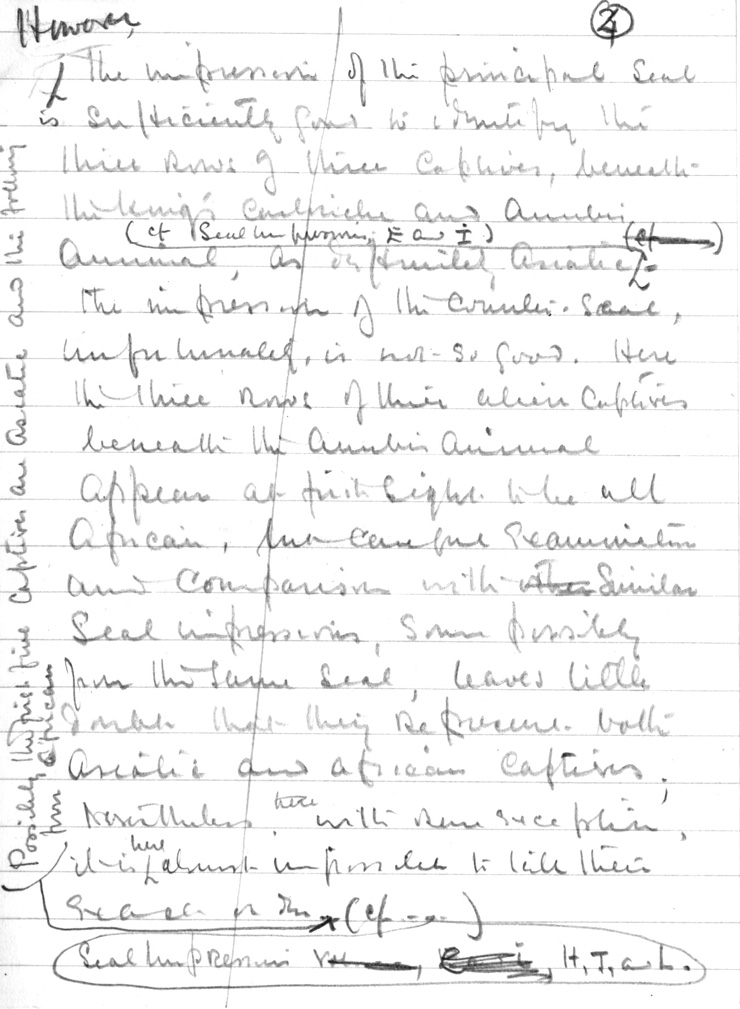 However,
24
The impression of the principal Seal
is sufficiently good to identify the
three rows of three captives, beneath
the king's cartouche and Anubis
(cf Seal impressions E and I)
Animal, as definitely Asiatic.
The impression of the Counter-Seal,
unfortunately, is not so good. Here
the three rows of three alien captives
beneath the Anubis animal
appear at first sight to be all
African, but careful examination
and comparison with similar
Seal impressions, some possibly
from the same Seal, leaves little
doubt that they represent both
Asiatic and African captives;
Nevertheless, here with one exception,
it is here almost impossible to tell their
(cf
Seal Impressions H, J, and L.
Possibly the first five captives are Asiatic and the following
four African